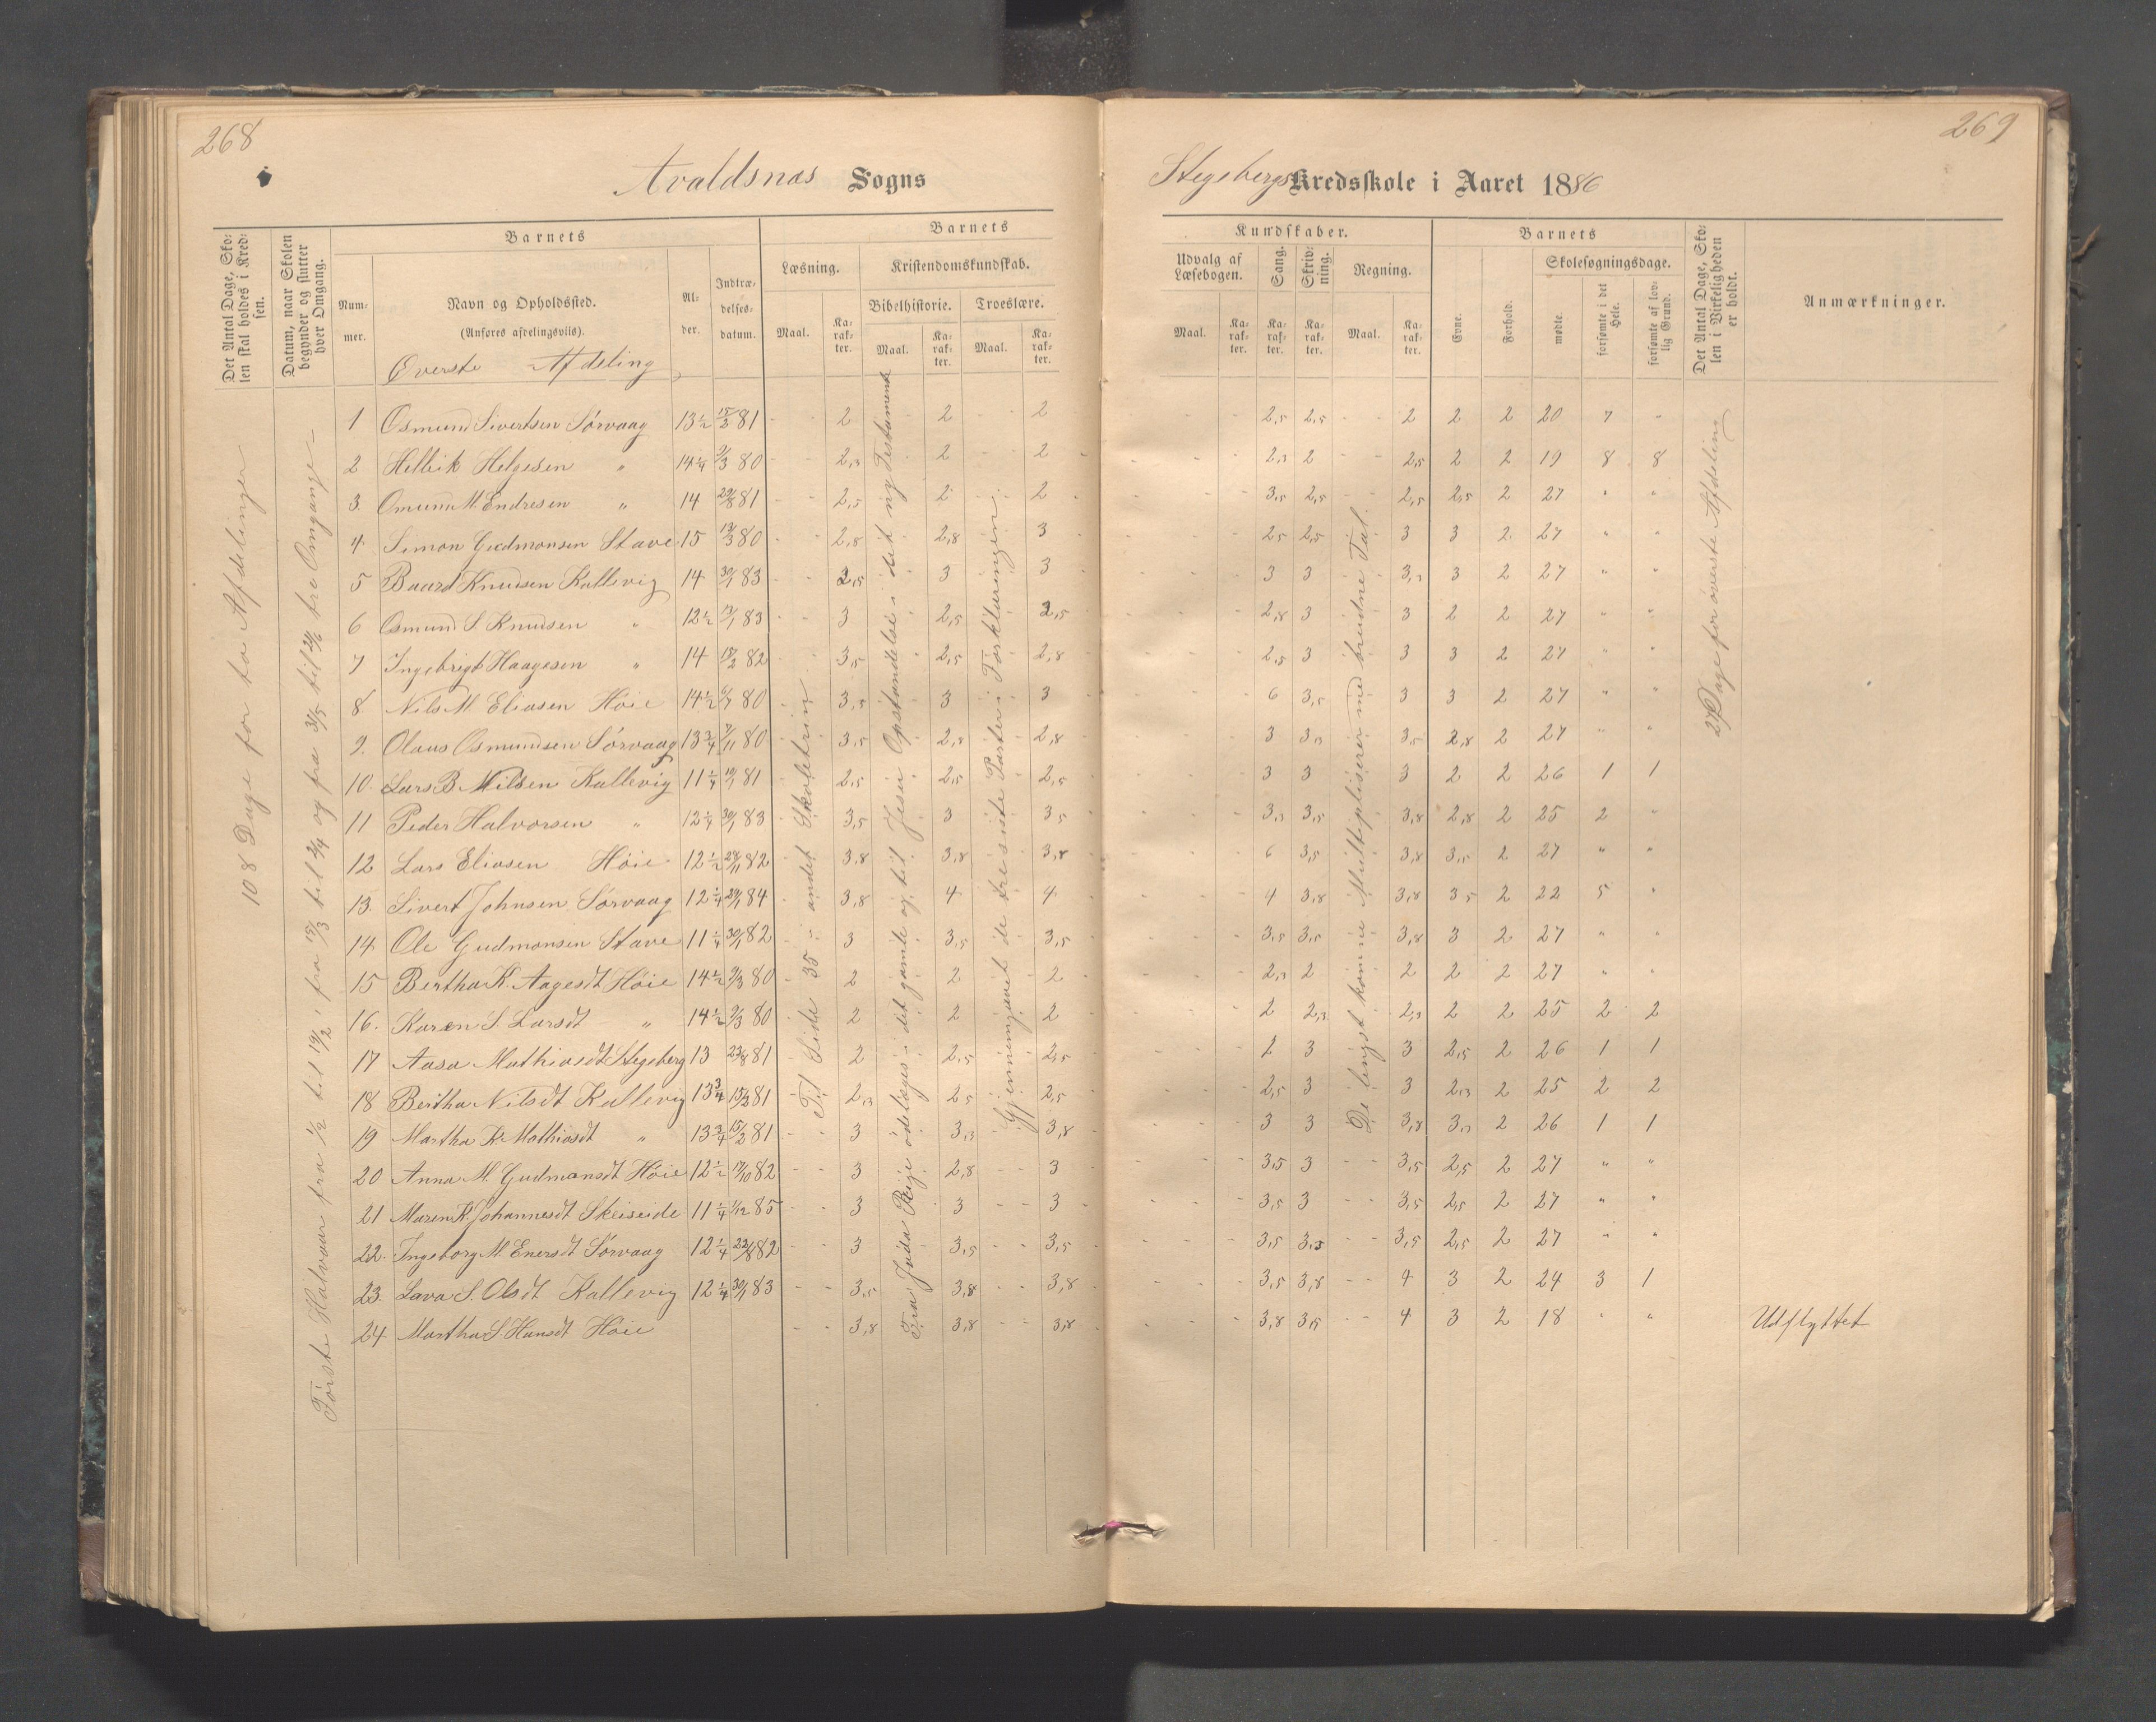 268
269
Avaldsnæs Sogns
Stegebergs Kredsskole i Aaret 1886
Det Antal Dage, Skolen skal holdes i Kredsen.
Datum, naar Skolen begynder og slutter hver Omgang.
Barnets
Nummer.
Navn og Opholdssted.
(Anføres afdelingsviis).
Alder.
Indtrædelsesdatum.
Barnets
Læsning.
Kristendomskundskab.
Bibelhistorie.
Troeslære.
Maal.
Karakter.
Maal.
Karakter.
Maal.
Karakter.
Kundskaber.
Udvalg af Læsebogen.
Sang.
Skrivning.
Regning.
Maal.
Karakter.
Karakter.
Karakter.
Maal.
Karakter.
Barnets
Evne.
Forhold.
Skolesøgningsdage.
mødte.
forsømte i det Hele.
forsømte af lovlig Grund.
Det Antal Dage, Skolen i Virkeligheden er holdt.
Anmærkninger.
Øverste Afdeling
108 Dage for to Afdelinger
Første Halvaar fra 1/2 til 19/2, fra 15/3 til 3/4 og fra 31/5 til 2/6 tre Omgange
Til Side 35 i andet Skoletrin
Fra Juda Rige ødelægges i det gamle og til Jesu Opstandelse i det ny Testamente
Gjennemgaaet de tre sidste Parter i Forklaringen
De længst komne Multipliserer med brudne Tal.
27 Dage for øverste Afdeling
1 Osmund Sivertsen Sørvaag 13 1/2 15/2 81 2 2 2 2,5 2,5 2 2 2 20 7 "
2 Hellik Helgesen " 14 1/4 9/3 80 2,3 2 2 2,3 2 2,5 2 2 19 8 8
3. Omund M. Endresen " 14 29/8 81 2,5 2 2 3,5 2,5 2,5 2,5 2 27 " "
4. Simon Gudmonsen Stave 15 13/3 80 2,8 2,8 3 2,5 2,5 3 3 2 27 " "
5 Baard Knudsen Kallevig 14 30/1 83 2,5 3 3 3 3 3,3 3 2 27 " "
6 Osmund S. Knudsen " 12 1/2 13/1 83 3 2,5 2,5 2,8 3 3 2 2 27 " "
7 Ingebrigt Haagesen " 14 18/2 82 3,5 2,5 2,8 2,5 3 3 3 2 27 " "
8 Nils M. Eliasen Høie 14 1/2 6/7 80 3,3 3 3 6 3,5 3 3 2 27 " "
9. Olaus Osmundsen Sørvaag 13 3/4 3/11 80 3,5 2,3 2,8 3 3,3 3,5 2,8 2 27 " "
10. Lars B. Nilsen Kallevig 11 1/4 19/1 81 2,5 2,5 2,5 3 3 3 2 2 26 1 1
11 Peder Halvorsen " 12 1/4 30/1 83 3,5 3 3,5 3,3 3,5 3,8 2,8 2 25 2 "
12 Lars Eliasen Høie 12 1/2 24/11 82 3,8 3,8 3,8 6 3,5 3,8 3,5 2 27 " "
13. Sivert Johnsen Sørvaag 12 1/4 29/1 84 3,8 4 4 4 3,8 3,8 3,5 2 22 5 "
14 Ole Gudmonsen Stave 11 1/4 30/1 82 3 3,5 3,5 3,5 3,5 3,8 3 2 27 " "
15 Bertha K. Aagesdt Høie 14 1/2 9/3 80 2 2 2 2,3 2 2 2 2 27 " "
16. Karen S. Larsdt " 14 1/2 9/3 80 2 2 2 2 2,3 2,3 2 2 25 2 2
17 Aasa Mathiasdt Stegeberg 13 23/8 81 2 2,5 2,5 2 3 3 2,5 2 26 1 1
18 Bertha Nilsdt Kallevig 13 3/4 15/2 81 2,3 2,5 2,5 2,5 3 3 2,3 2 25 2 2
19 Martha K. Mathiasdt " 13 3/4 15/2 81 3 3,3 3,8 3 3 3,8 3,3 2 26 1 1
20 Anna M. Gudmansdt Høie 12 1/2 17/10 82 3 2,8 3 3,5 3 3,5 2,5 2 27 " "
21 Maren K. Johannesdt Skeiseide 11 1/4 1/12 85 3 3 3 3,5 3 3,5 2,5 2 27 " "
22. Ingeborg M. Enersdt Sørvaag 12 1/4 22/8 82 3 3,5 3,5 3,5 3,3 3,5 2,5 2 27 " "
23. Lava S. Olsdt Kallevig 12 1/4 30/1 83 3,5 3,8 3,8 3,5 3,8 4 3 2 24 3 1
24 Martha S. Hansdt Høie 3,8 3,8 3,8 3,8 3,5 4 3 2 18 " " Udflyttet